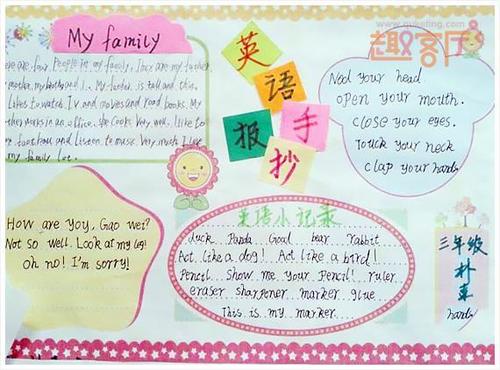 My family
There are four People in my family, They are my father
mother, my brother and I. My father is tall and thin.
likes to watch TV and movies and read books. My
mother works in an office. She Cooks very well. I like to
and listen to music. Very much I like
my family lot.
英
语
手
报
抄
www.quketing.com
趣客厅
Nod your head
open your mouth.
close your eyes.
Touch your neck
clap your hands
How are yoy, Gao wei?
Not so well. Look at my leg!
oh no! I'm sorry!
英语小记录
duck Panda Goal bear rabbit
Act like a dog! Act like a bird!
Pencil Show me your Pencil! ruler
eraser sharpener marker glue
This is my marker
三年级